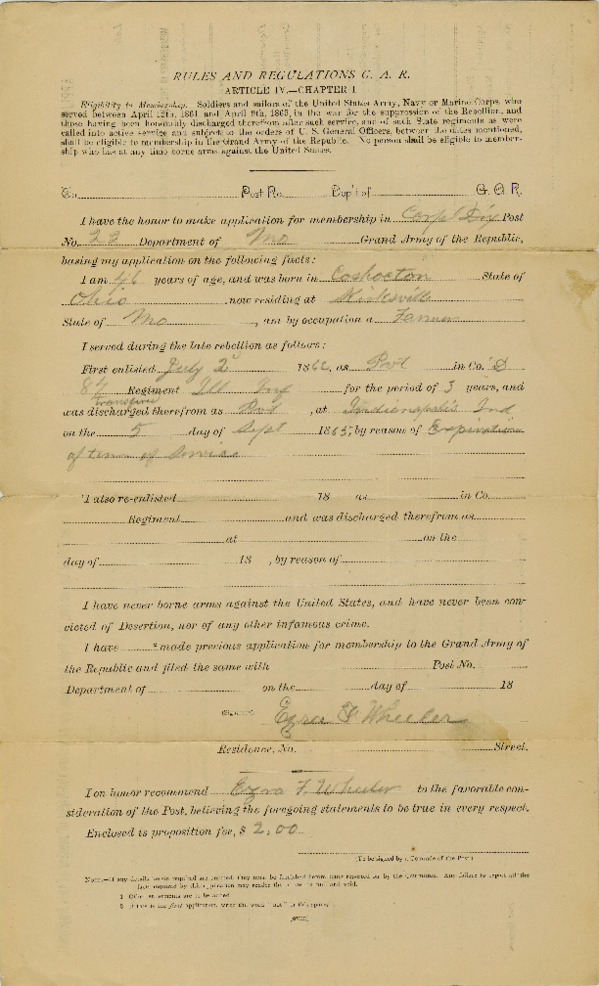 RULES AND REGULATIONS G. A. R.
ARTICLE IV.—CHAPTER I.
Eligibility to Membership. Soldiers and sailors of the United States Army, Navy or Marine Corps, who
served between April 12th, 1861 and April 9th, 1865, in the war for the suppression of the Rebellion, and
those having been honorably discharged therefrom after such service, and of such State regiments as were
called into active service and subject to the orders of U. S. General Officers, between the dates mentioned,
shall be eligible to membership in the Grand Army of the Republic. No person shall be eligible to member-
ship who has at any time borne arms against the United States.
To Post No. Dep't of G. A. R.
I have the honor to make application for membership in Corp Dix Post
No. 22 Department of Mo Grand Army of the Republic,
basing my application on the following facts:
I am 46 years of age, and was born in Coshocton State of
Ohio , now residing at Kirksville
State of Mo , am by occupation a Farmer
I served during the late rebellion as follows:
First enlisted July 2 1862, as Pvt in Co. D
Regiment Ill Inf for the period of 3 years, and
was discharged therefrom as Pvt , at Indianapolis Ind
on the 5 day of Sept 1865, by reason of Expiration
of term of Service
I also re-enlisted 18 as in Co.
Regiment and was discharged therefrom as
at on the
day of 18 , by reason of
I have never borne arms against the United States, and have never been con-
victed of Desertion, nor of any other infamous crime.
I have made previous application for membership to the Grand Army of
the Republic and filed the same with Post No.
Department of on the day of 18
Ezra F Wheeler
Residence, No. Street.
I on honor recommend Ezra F. Wheeler to the favorable con-
sideration of the Post, believing the foregoing statements to be true in every respect.
Enclosed is proposition fee, $ 2.00
(To be signed by a Comrade of the Post.)